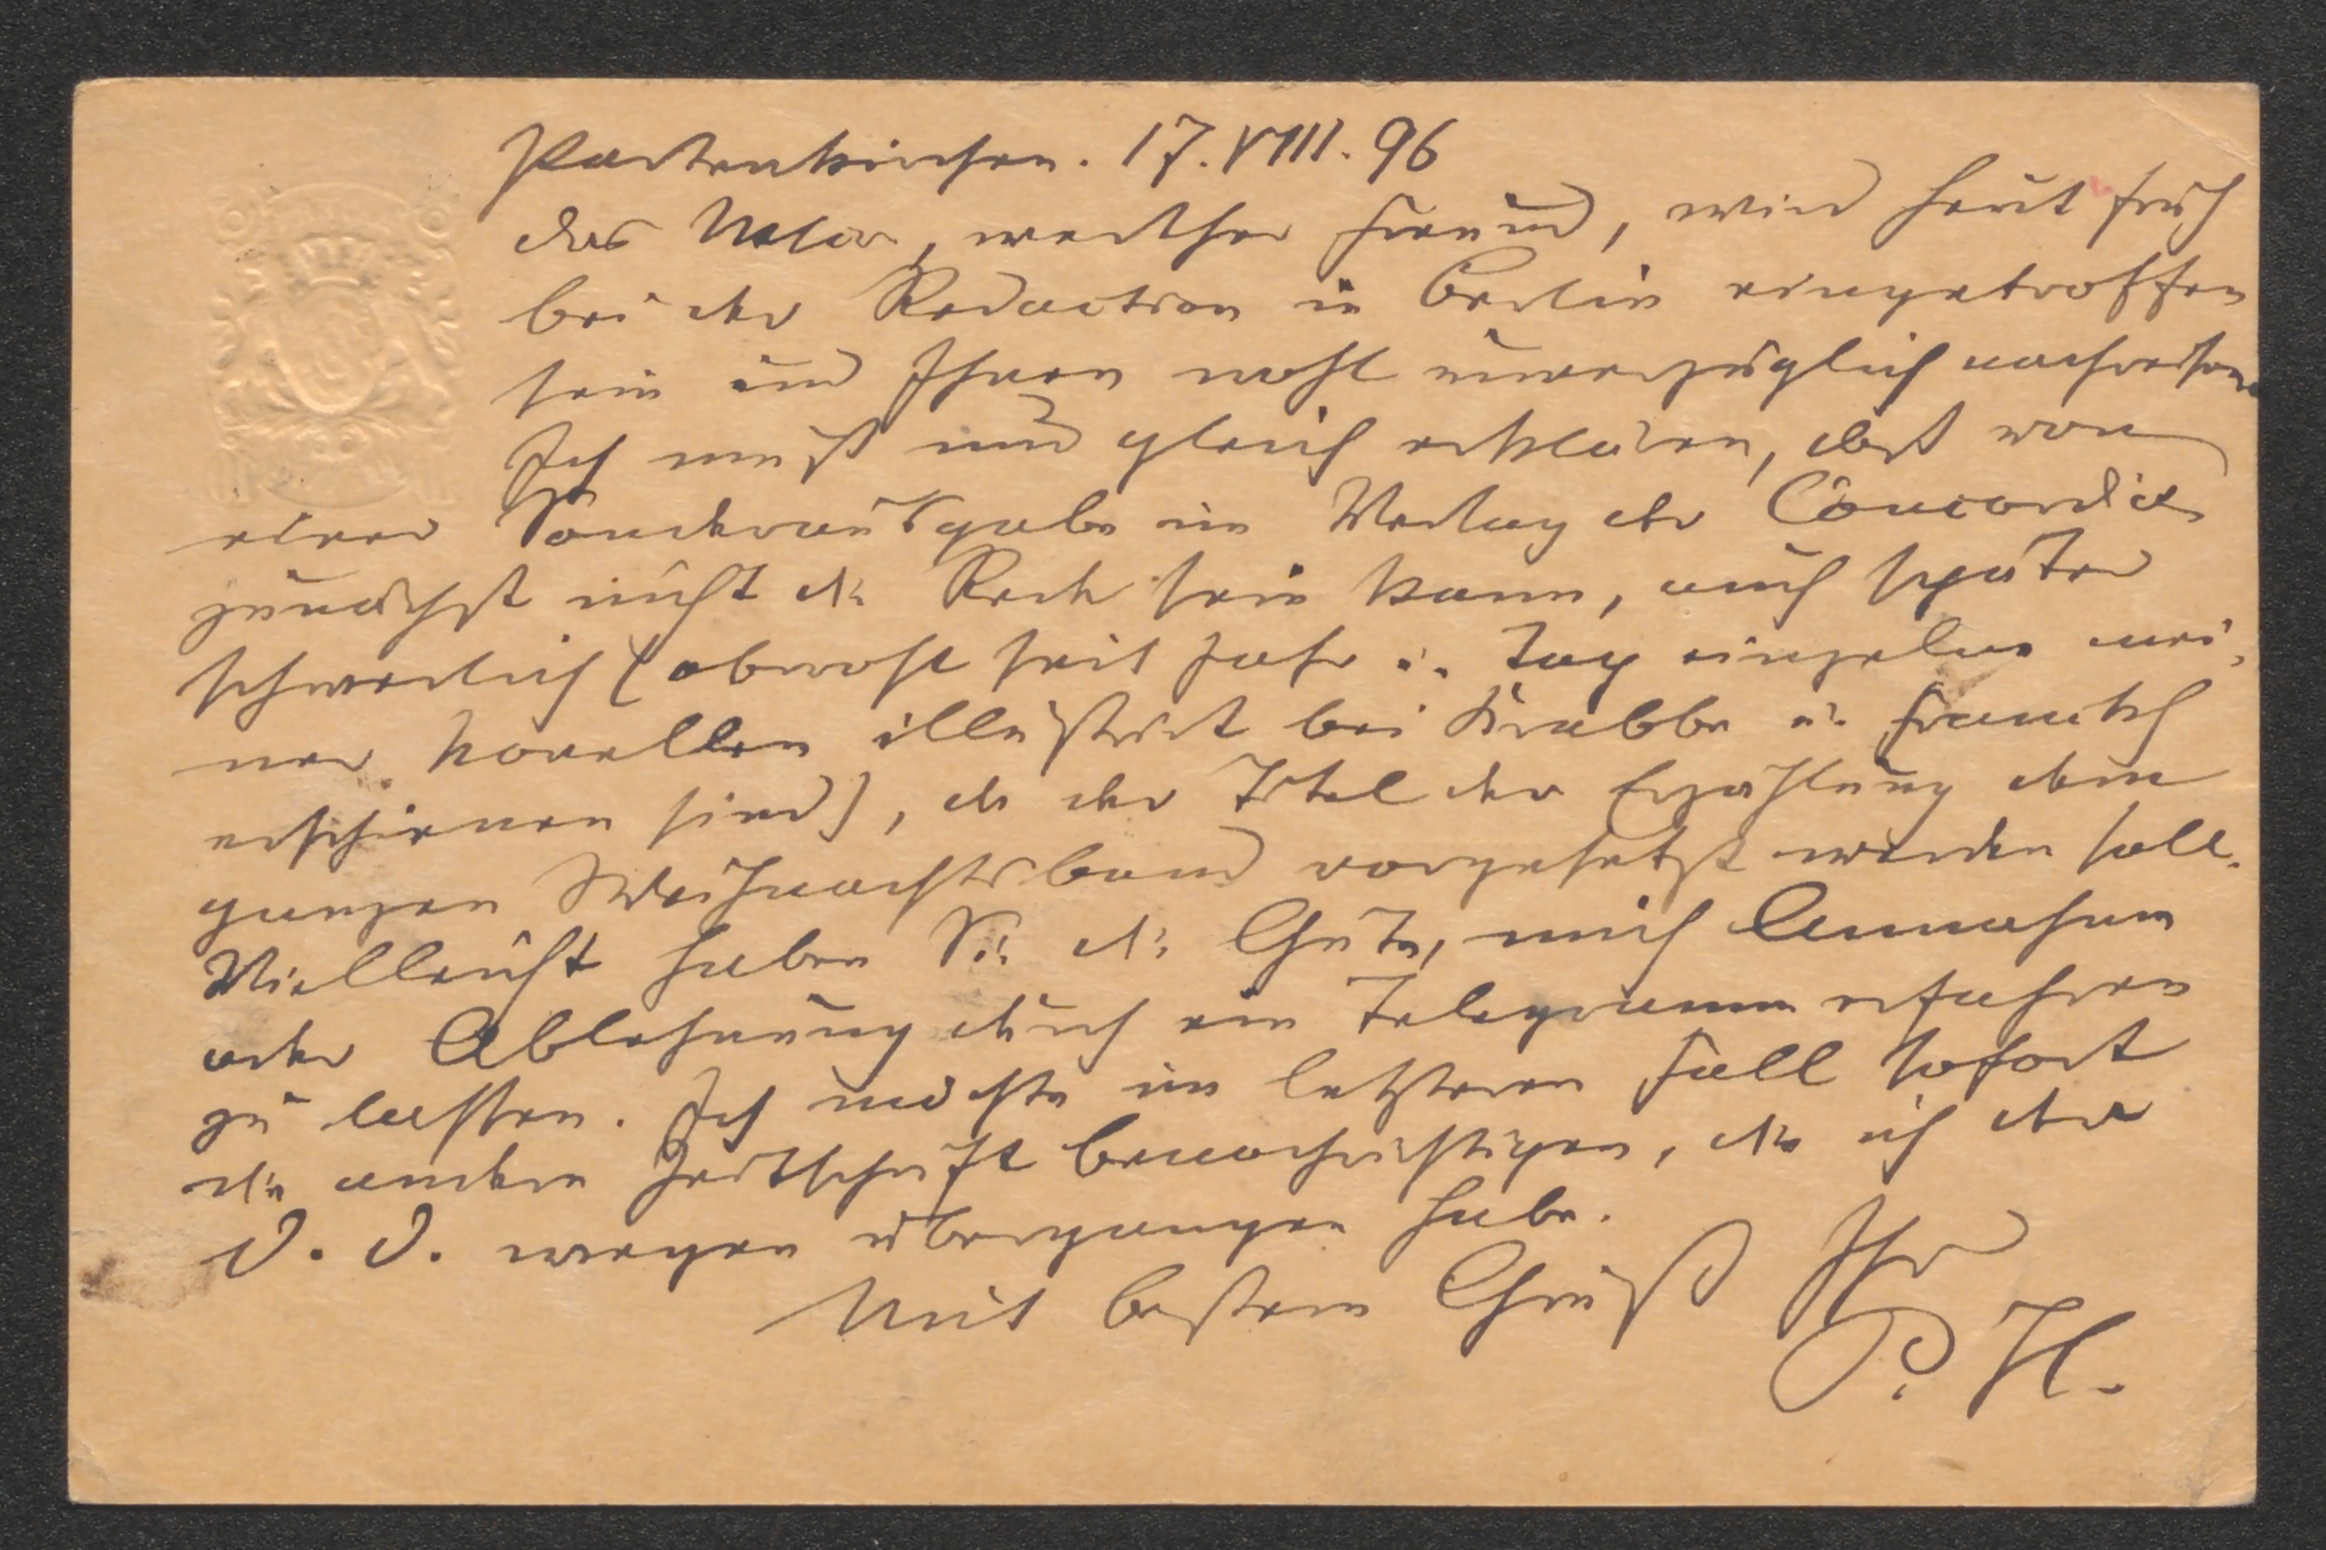 Partenkirchen. 17. VIII. 96
das werther Freund, wird heut früh
bei der Redaction in Berlin eingetroffen
sein und Ihnen wohl unverzüglich nachreisen.
Ich muß nun gleich erklären, daß von
einer Sonderausgabe im Verlag der Concordia
zunächst nicht die Rede sein kann, auch später
schwerlich (obwohl seit Jahr u. Tag einzelne mei-
ner Novellen illustrirt bei Krabbe u. Franckh
erschienen sind), da der Titel der Erzählung dem
ganzen Weihnachtsband vorgesetzt werden soll.
Vielleicht haben Sie die Güte, mich Annahme
oder Ablehnung durch ein Telegramm erfahren
zu lassen. Ich möchte im letzteren Fall sofort
die andere Zeitschrift benachrichtigen, die ich der
D. D. wegen übergangen habe.
Mit bestem Gruß Ihr
P. H.